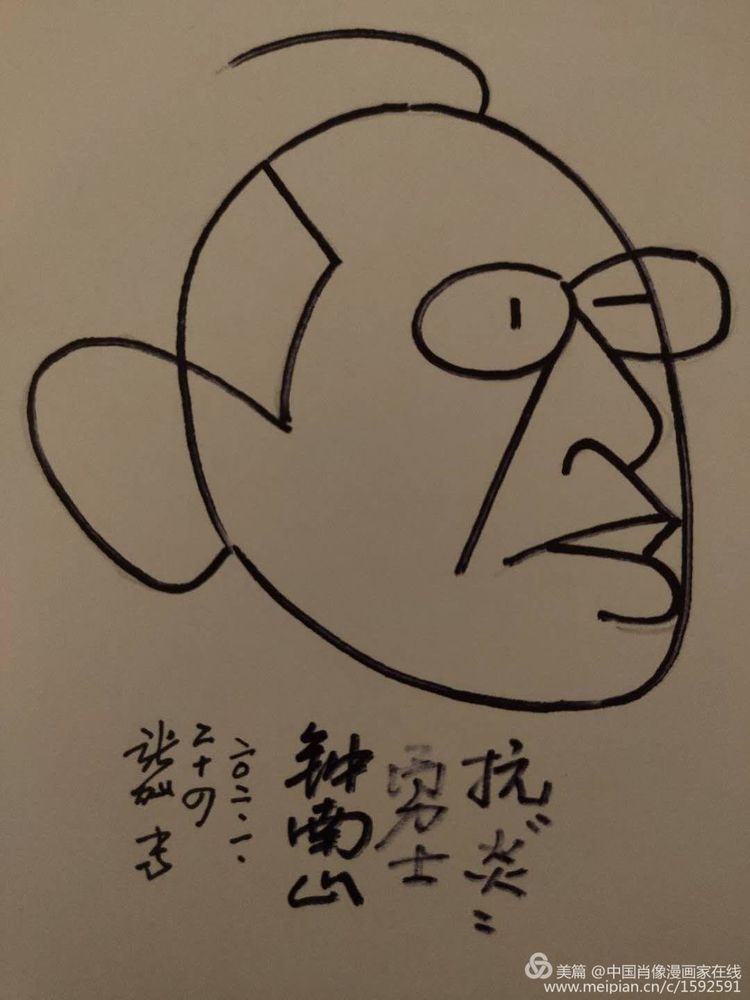 抗“炎”
勇士
钟南山
二〇二·一·
二十四
张
美篇 @中国肖像漫画家在线
www.meipian.cn/c/1592591